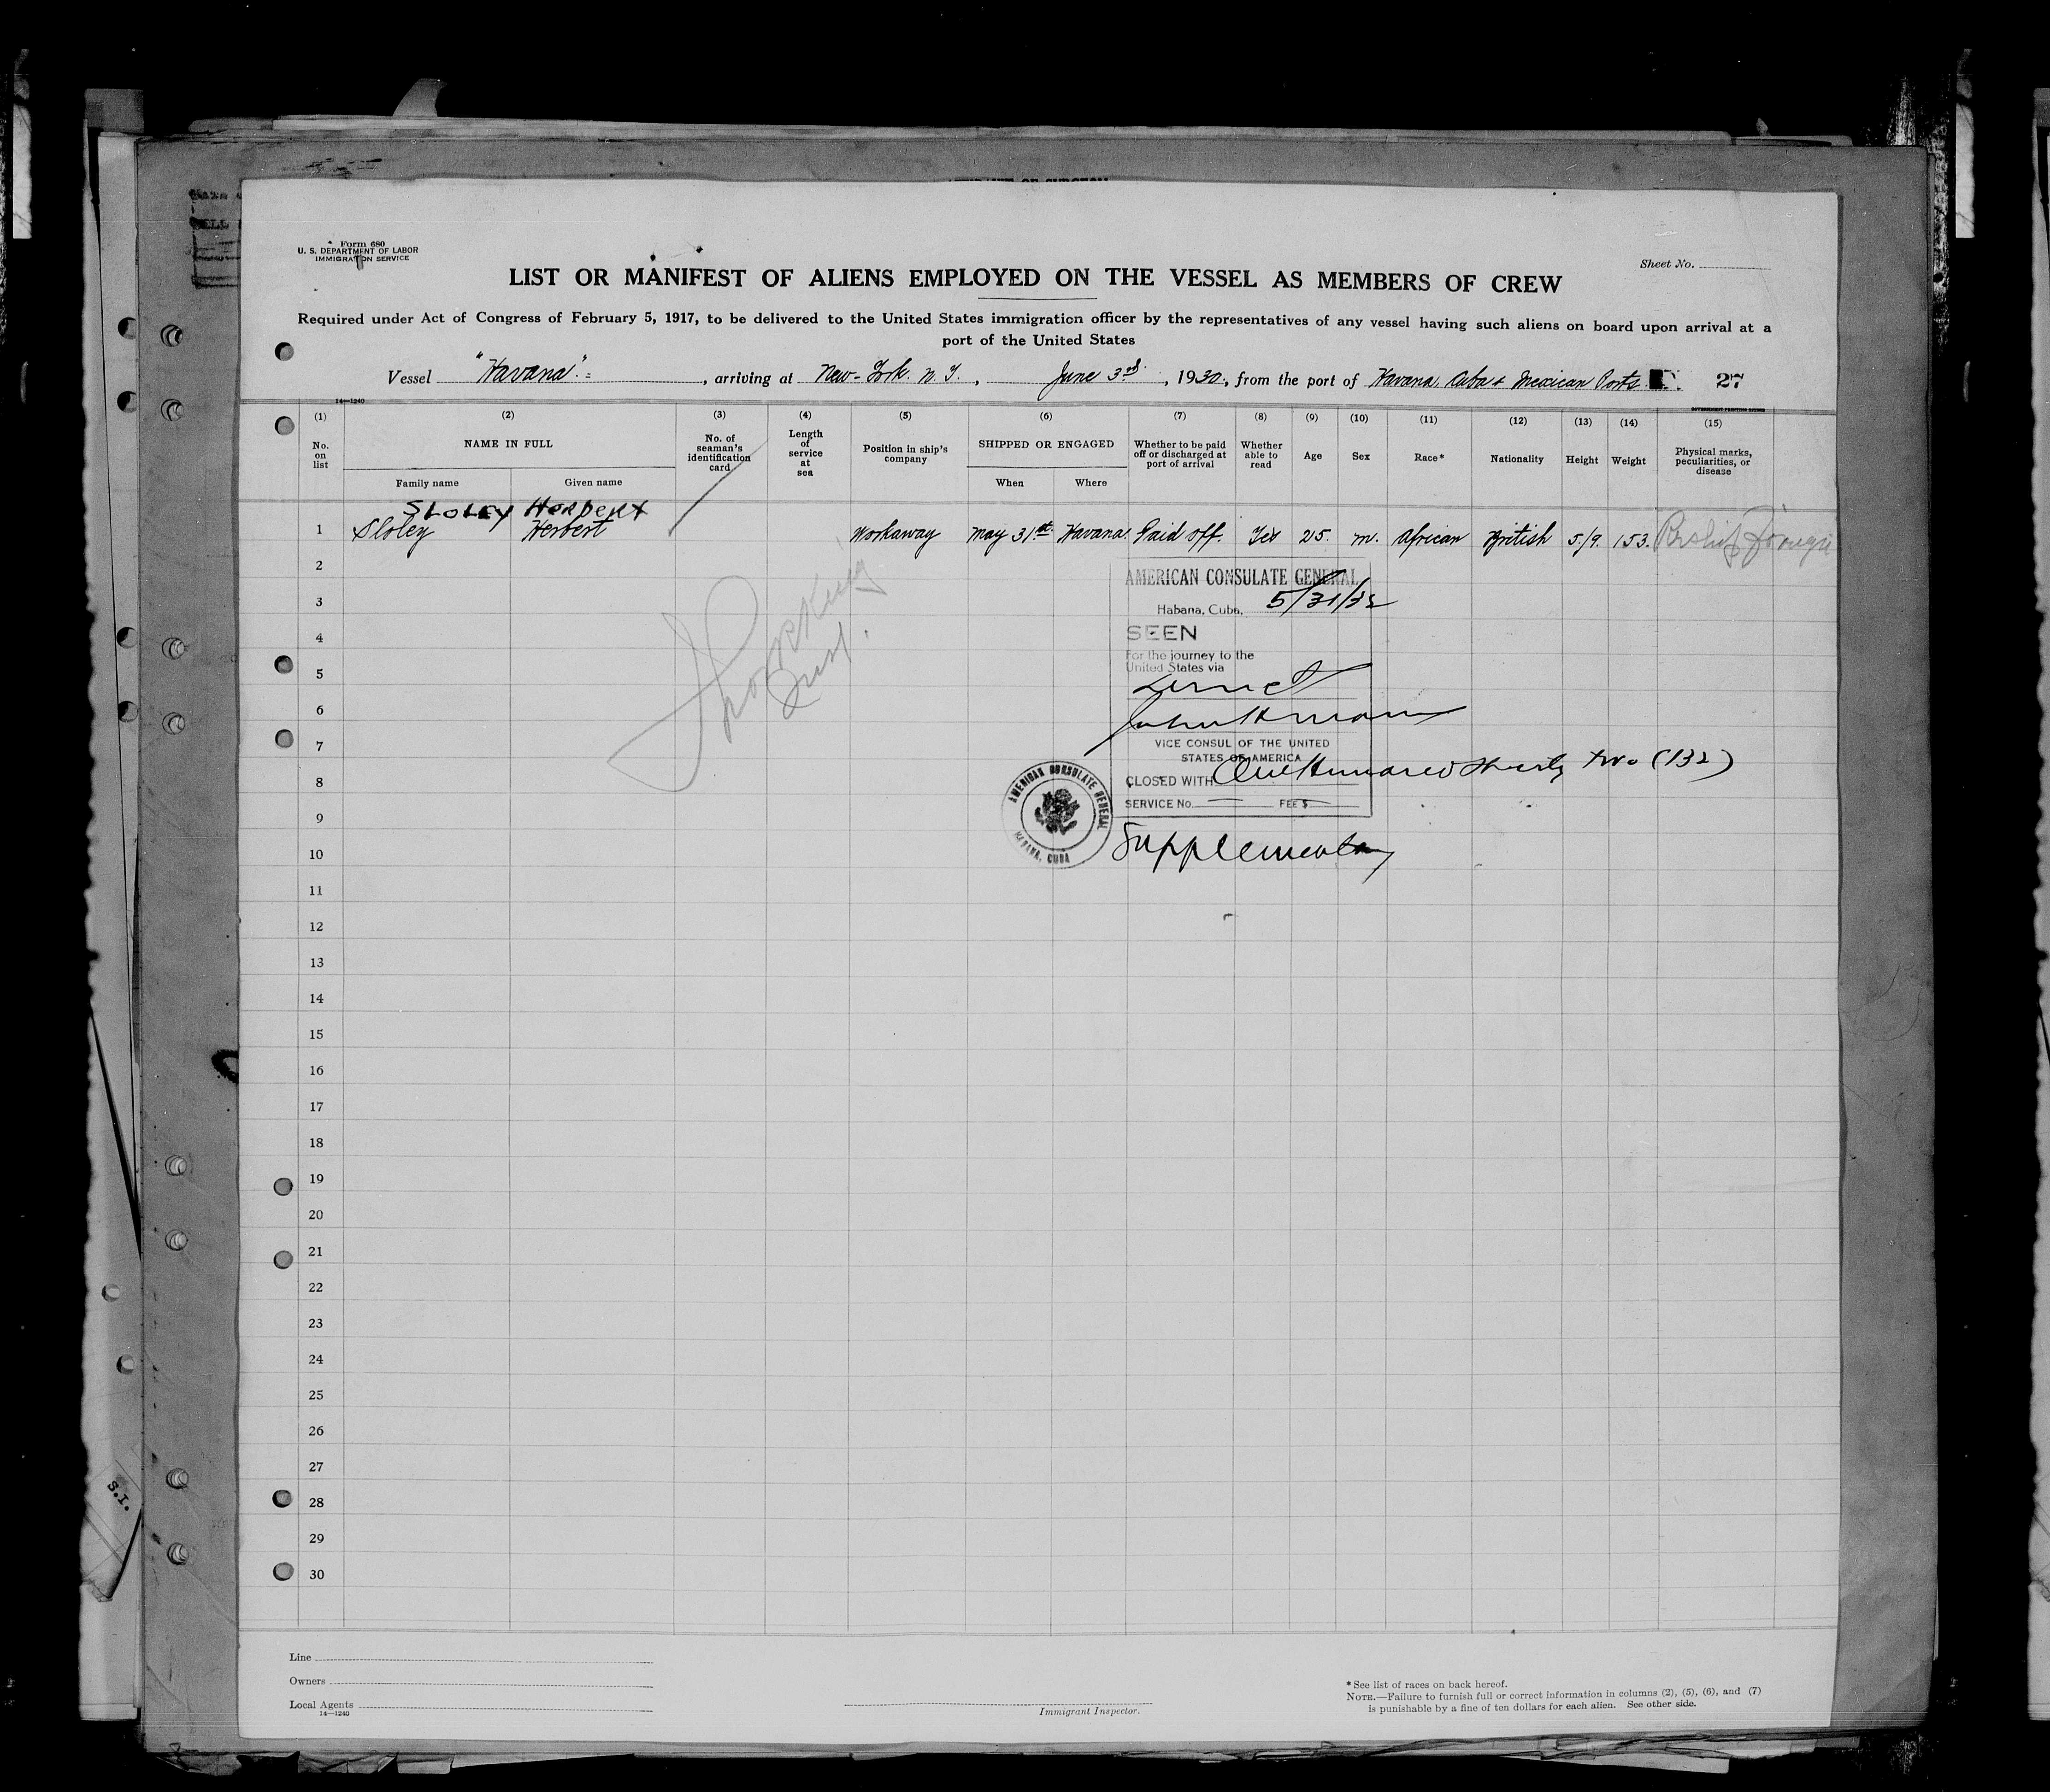 Form 680
U. S. DEPARTMENT OF LABOR
IMMIGRATION SERVICE
Sheet No.
LIST OR MANIFEST OF ALIENS EMPLOYED ON THE VESSEL AS MEMBERS OF CREW
Required under Act of Congress of February 5, 1917, to be delivered to the United States immigration officer by the representatives of any vessel having such aliens on board upon arrival at a
port of the United States
Vessel "Havana", arriving at New-York. N. Y., June 3rd, 1930, from the port of Havana. Cuba & Mexican Ports. 27
14—1240
(1) (2) (3) (4) (5) (6) (7) (8) (9) (10) (11) (12) (13) (14) (15)
No. on list
NAME IN FULL
Family name
Given name
No. of seaman's identification card
Length of service at sea
Position in ship's company
SHIPPED OR ENGAGED
When
Where
Whether to be paid off or discharged at port of arrival
Whether able to read
Age
Sex
Race*
Nationality
Height
Weight
Physical marks, peculiarities, or disease
SLOLEY Herbert
1 Sloley Herbert Workaway May 31st Havana. Paid off. Yes 25. m. African British 5/9. 153.
2
3
4
5
6
7
8
9
10
11
12
13
14
15
16
17
18
19
20
21
22
23
24
25
26
27
28
29
30
AMERICAN CONSULATE GENERAL
Habana, Cuba,
SEEN
For the journey to the
United States via
VICE CONSUL OF THE UNITED
STATES OF AMERICA
CLOSED WITH One Hundred thirty two (132)
SERVICE No. FEE $
AMERICAN CONSULATE GENERAL
HAVANA, CUBA
Supplementary
S.I.
Line
Owners
Local Agents
14—1240
Immigrant Inspector.
*See list of races on back hereof.
NOTE.—Failure to furnish full or correct information in columns (2), (5), (6), and (7)
is punishable by a fine of ten dollars for each alien. See other side.